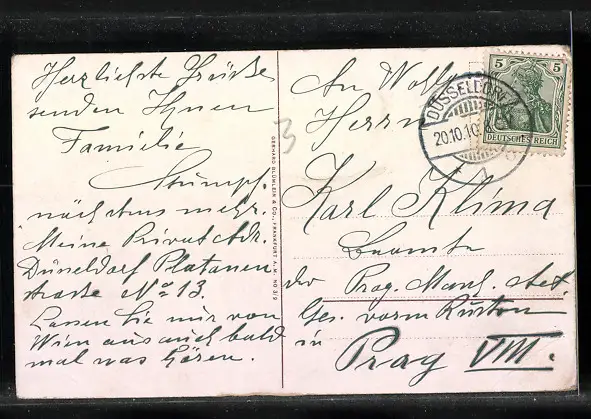 Herzliebste Grüße
senden Ihnen
Familie
Stumpf.
nächstens mehr.
Meine Privat Adr.
Düsseldorf Platanen
strasse No 13.
Lassen Sie mir von
Wien aus auch bald
mal was hören.
GERHARD BLÜMLEIN & CO., FRANKFURT A. M. NO 3/2
3
An Wolh
Herrn
Karl Klima
Beamte
der Prag. Masch. Act.
Ges. vorm Ruston
in
Prag VIII.
DÜSSELDORF
20.10.10. 8
1
5 5
DEUTSCHES REICH